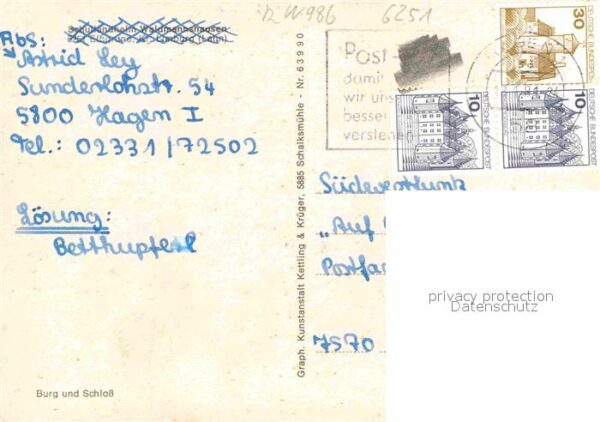 12 W986
6251
Schullandheim Waldmannshausen
Abs:
Astrid Ley
Sunderlohstr. 54
5800 Hagen I
Tel.: 02331/72502
Lösung:
Betthupferl
Burg und Schloß
Graph. Kunstanstalt Kettling & Krüger, 5885 Schalksmühle - Nr. 63990
Post
damit
wir uns
besser
verstehen
30
DEUTSCHE BUNDESPOST
10
DEUTSCHE BUNDESPOST
10
DEUTSCHE BUNDESPOST
Südwestfunk
"Auf
Postfa
7570
privacy protection
Datenschutz